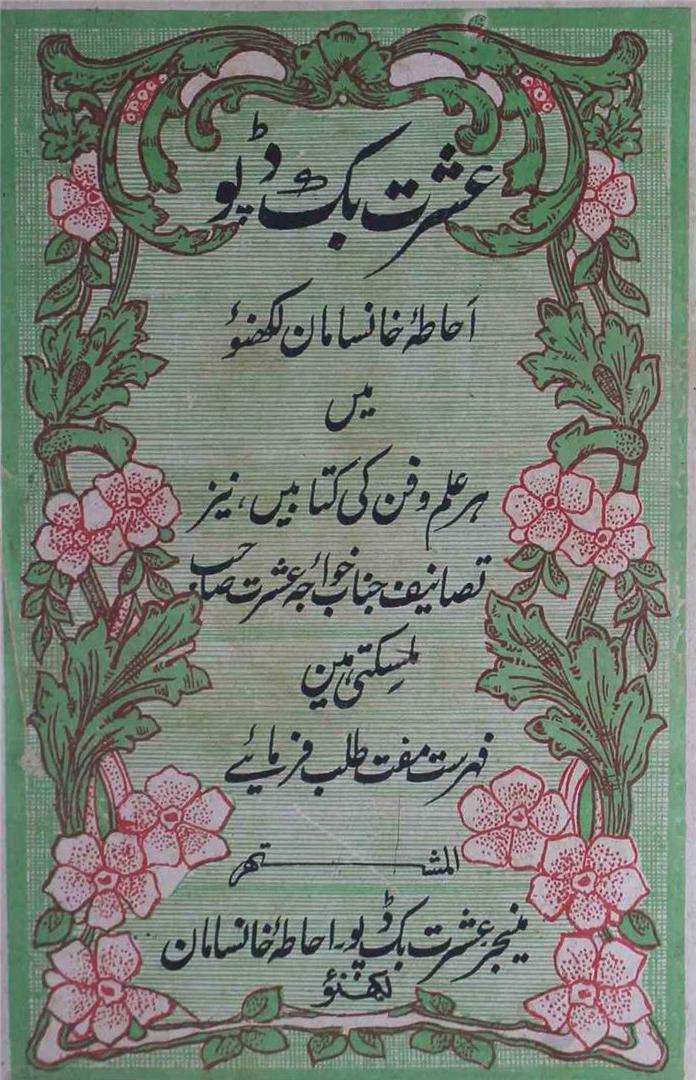 عشرت بک ڈپو
احاطۂ خانسامان لکھنؤ
میں
ہر علم و فن کی کتابیں، نیز
تصانیف جناب خواجہ عشرت صاحب
ملسکتی ہین
فہرست مفت طلب فرمائیے
المشتہر
منیجر عشرت بک ڈپو۔ احاطۂ خانسامان
لکھنؤ